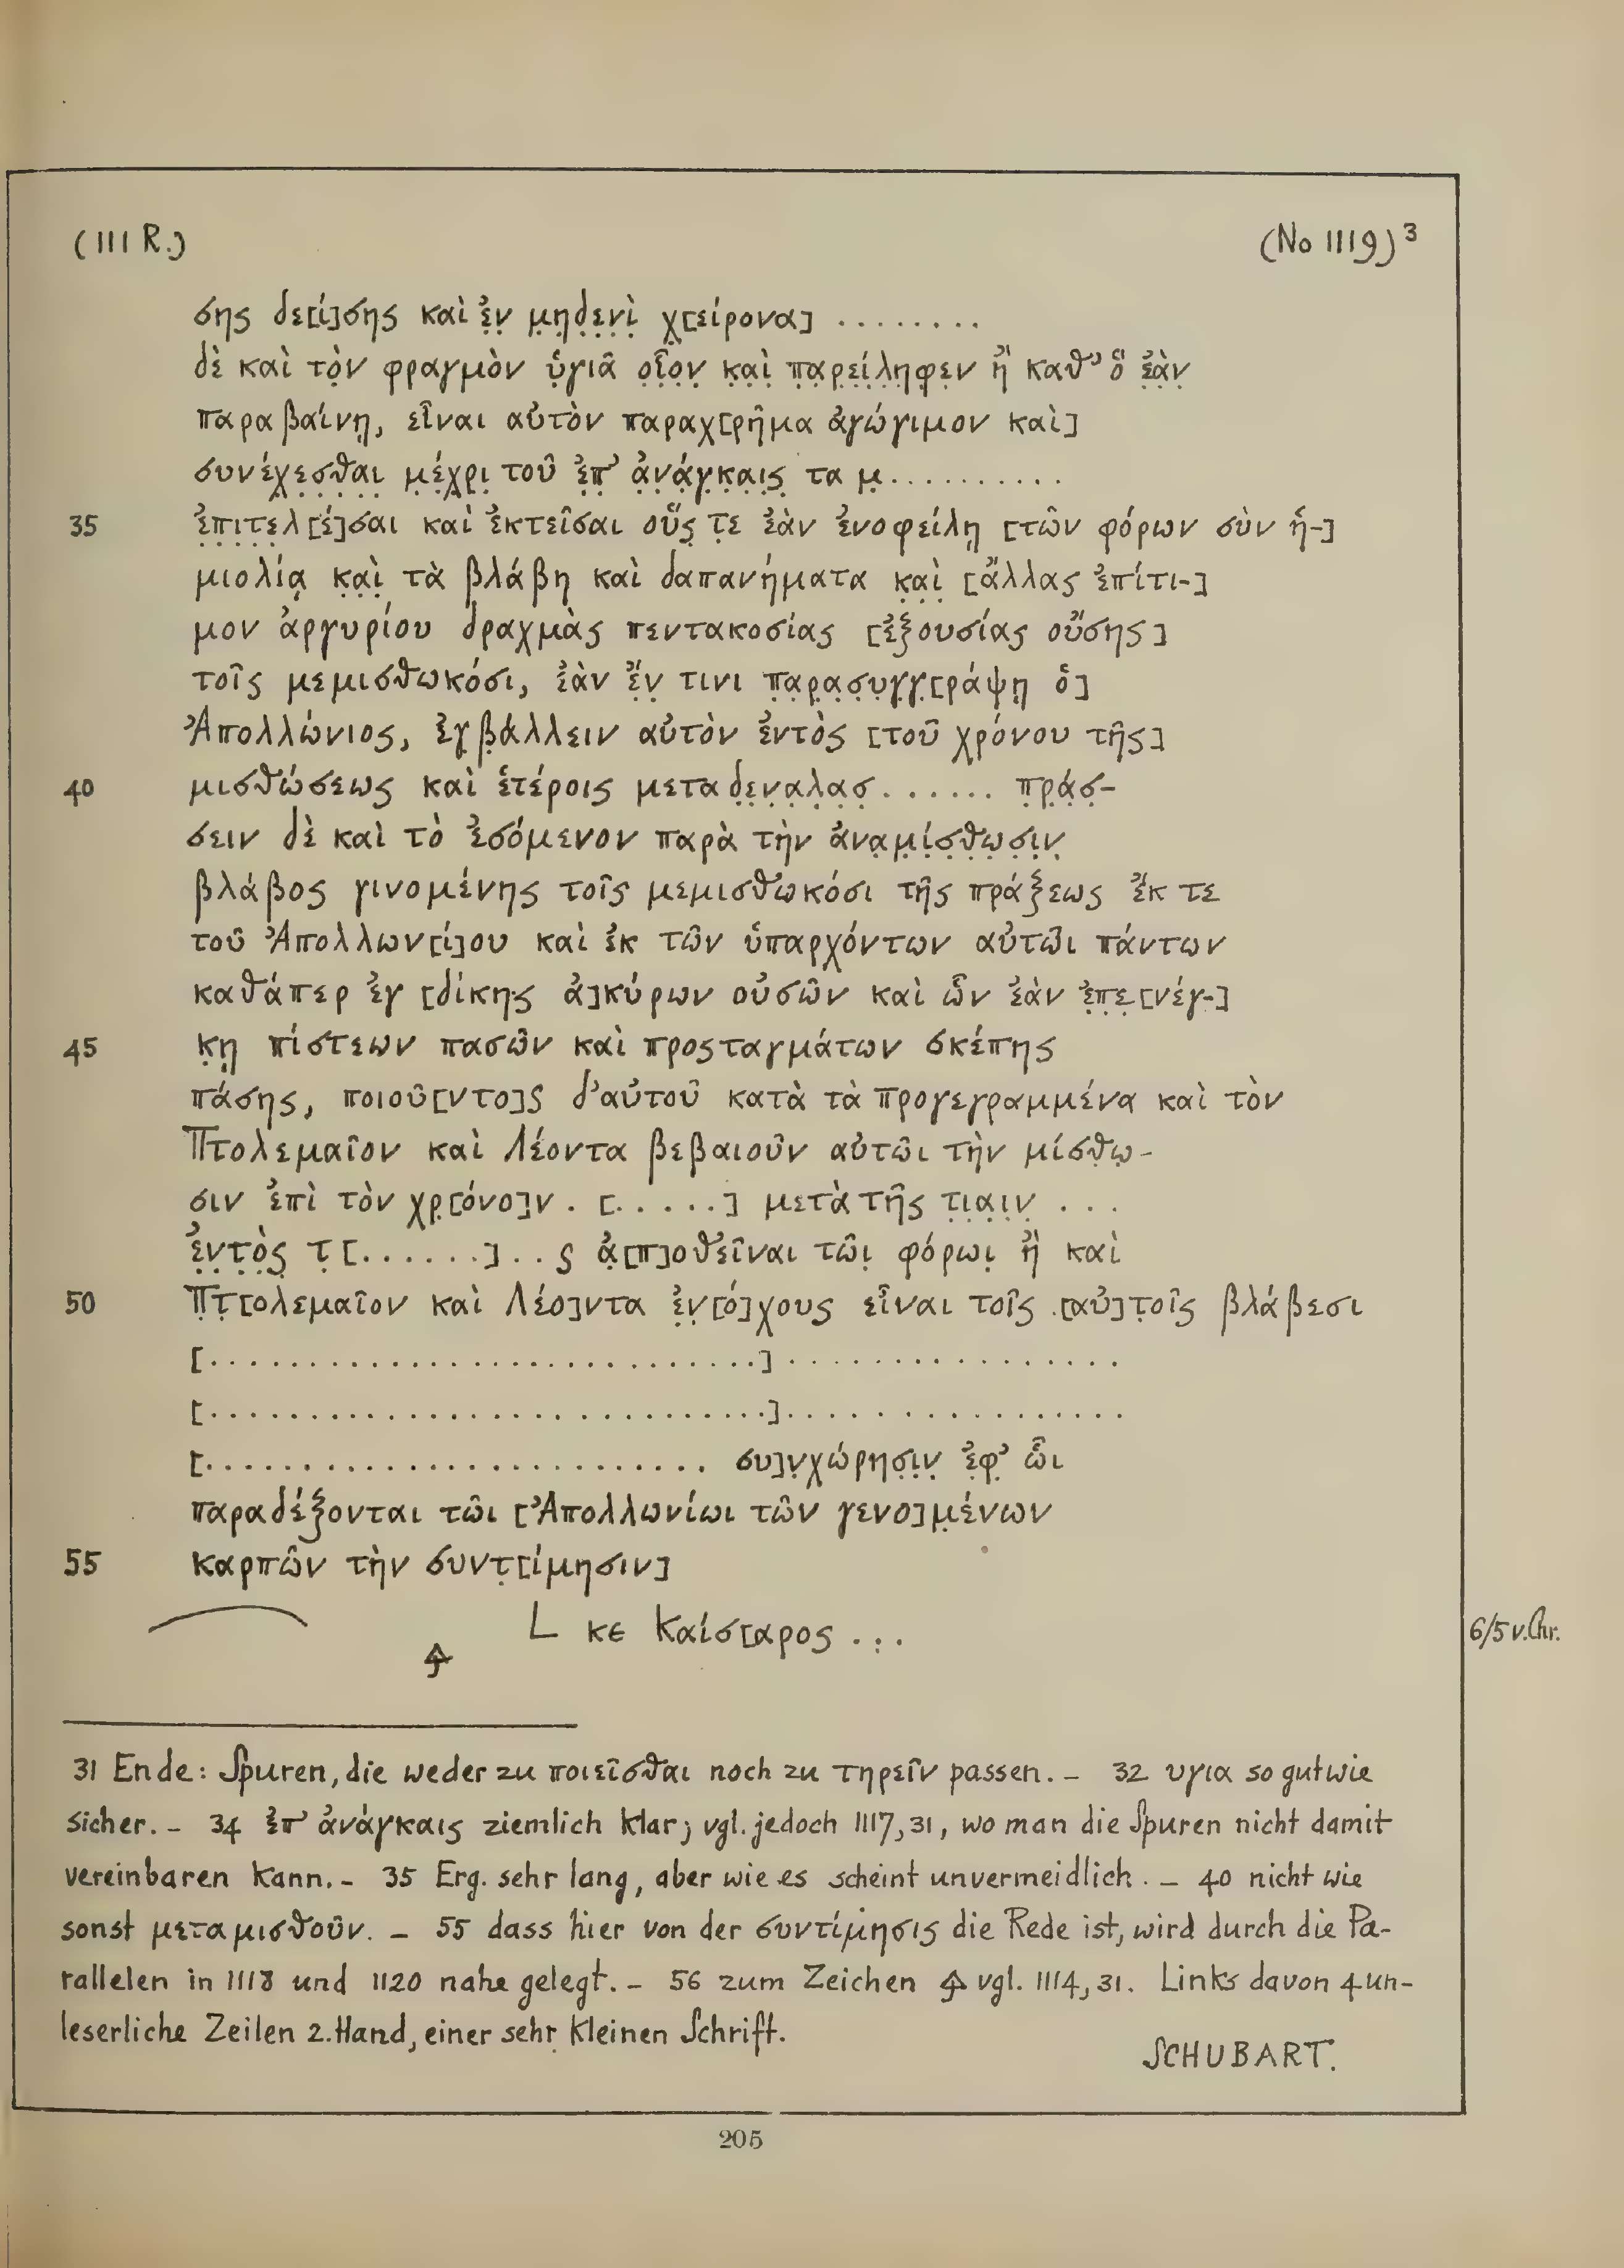 (III R.) (No 1119)³
σης δε[ί]σης καὶ ἐ̣ν̣ μ̣η̣δ̣ε̣ν̣ὶ̣ χ̣[είρονα] ........
δὲ καὶ τὸ̣ν φραγμὸν ὑ̣γιᾶ ο̣ἷ̣ο̣ν̣ κ̣α̣ὶ̣ π̣α̣ρ̣ε̣ί̣λ̣η̣φ̣ε̣ν ἢ̣ καθ’ ὃ ἐ̣ὰ̣ν̣
παραβαίνῃ, εἶναι αὐτὸν παραχ[ρῆμα ἀγώγιμον καὶ]
συνέ̣χ̣ε̣σ̣θ̣α̣ι̣ μ̣έ̣χ̣ρ̣ι̣ τοῦ ἐ̣π̣’ ἀ̣ν̣ά̣γ̣κ̣α̣ι̣ς̣ τα μ̣..........
35 ἐ̣π̣ι̣τ̣ε̣λ[έ]σαι καὶ ἐκτεῖσαι οὕς̣ τ̣ε ἐὰν ἐνοφείλῃ [τῶν φόρων σὺν ἡ-]
μιολίᾳ κ̣α̣ὶ̣ τὰ βλάβη καὶ δαπανήματα κ̣α̣ὶ̣ [ἄλλας ἐπίτι-]
μον ἀργυρίου δραχμὰς πεντακοσίας [ἐξουσίας οὔσης]
τοῖς μεμισθωκόσι, ἐὰν ἔ̣ν̣ τινι π̣α̣ρ̣α̣σ̣υ̣γ̣γ̣[ράψῃ ὁ]
Ἀπολλώνιος, ἐγ̣β̣άλλειν αὐτὸν ἐντὸς [τοῦ χρόνου τῆς]
40 μισθώσεως καὶ ἑτέροις μεταδ̣ε̣ν̣α̣λ̣α̣σ̣...... π̣ρ̣ά̣σ̣-
σειν δὲ καὶ τὸ ἐσόμενον παρὰ τὴν ἀνα̣μ̣ί̣σ̣θ̣ω̣σ̣ι̣ν̣
βλάβος γινομένης τοῖς μεμισθωκόσι τῆς πράξεως ἔκ τε
τοῦ Ἀπολλων[ί]ου καὶ ἐκ τῶν ὑπαρχόντων αὐτῶι πάντων
καθάπερ ἐγ [δίκης ἀ]κύρων οὐσῶν καὶ ὧν ἐὰν ἐ̣π̣ε̣[νέγ-]
45 κ̣ῃ πίστεων πασῶν καὶ προσταγμάτων σκέπης
πάσης, ποιοῦ[ντο]ς δ’αὐτοῦ κατὰ τὰ προγεγραμμένα καὶ τὸν
Πτολεμαῖον καὶ Λέοντα βεβαιοῦν αὐτῶι τὴν μίσθ̣ω̣-
σιν ἐπὶ τὸν χρ̣[όνο]ν . [.....] μετὰ τῆς τ̣ι̣α̣ι̣ν̣ ...
ἐ̣ν̣τ̣ὸ̣ς̣ τ̣[.......]..ς ἀ̣[π]οθεῖναι τῶι̣ φόρωι̣ ἢ̣ καὶ
50 Π̣τ̣[ολεμαῖον καὶ Λέο]ντα ἐ̣ν̣[ό]χους εἶναι τοῖς [αὐ]τ̣οῖς βλάβεσι
[............................].................
[............................].................
[.......................... συ]ν̣χώρησ̣ι̣ν̣ ἐ̣φ̣’ ὧι
παραδέξονται τῶι [Ἀπολλωνίωι τῶν γενο]μ̣ένων
55 καρπῶν τὴν συντ̣[ίμησιν]
L κε Καίσ[αρος ... 6/5 v. Chr.
31 Ende: Spuren, die weder zu ποιεῖσθαι noch zu τηρεῖν passen. – 32 υγια so gut wie
sicher. – 34 ἐπ’ ἀνάγκαις ziemlich klar; vgl. jedoch 1117, 31, wo man die Spuren nicht damit
vereinbaren kann. – 35 Erg. sehr lang, aber wie es scheint unvermeidlich. – 40 nicht wie
sonst μεταμισθοῦν. – 55 dass hier von der συντίμησις die Rede ist, wird durch die Pa-
rallelen in 1118 und 1120 nahe gelegt. – 56 zum Zeichen vgl. 1114, 31. Links davon 4 un-
leserliche Zeilen 2. Hand, einer sehr kleinen Schrift.
SCHUBART.
205